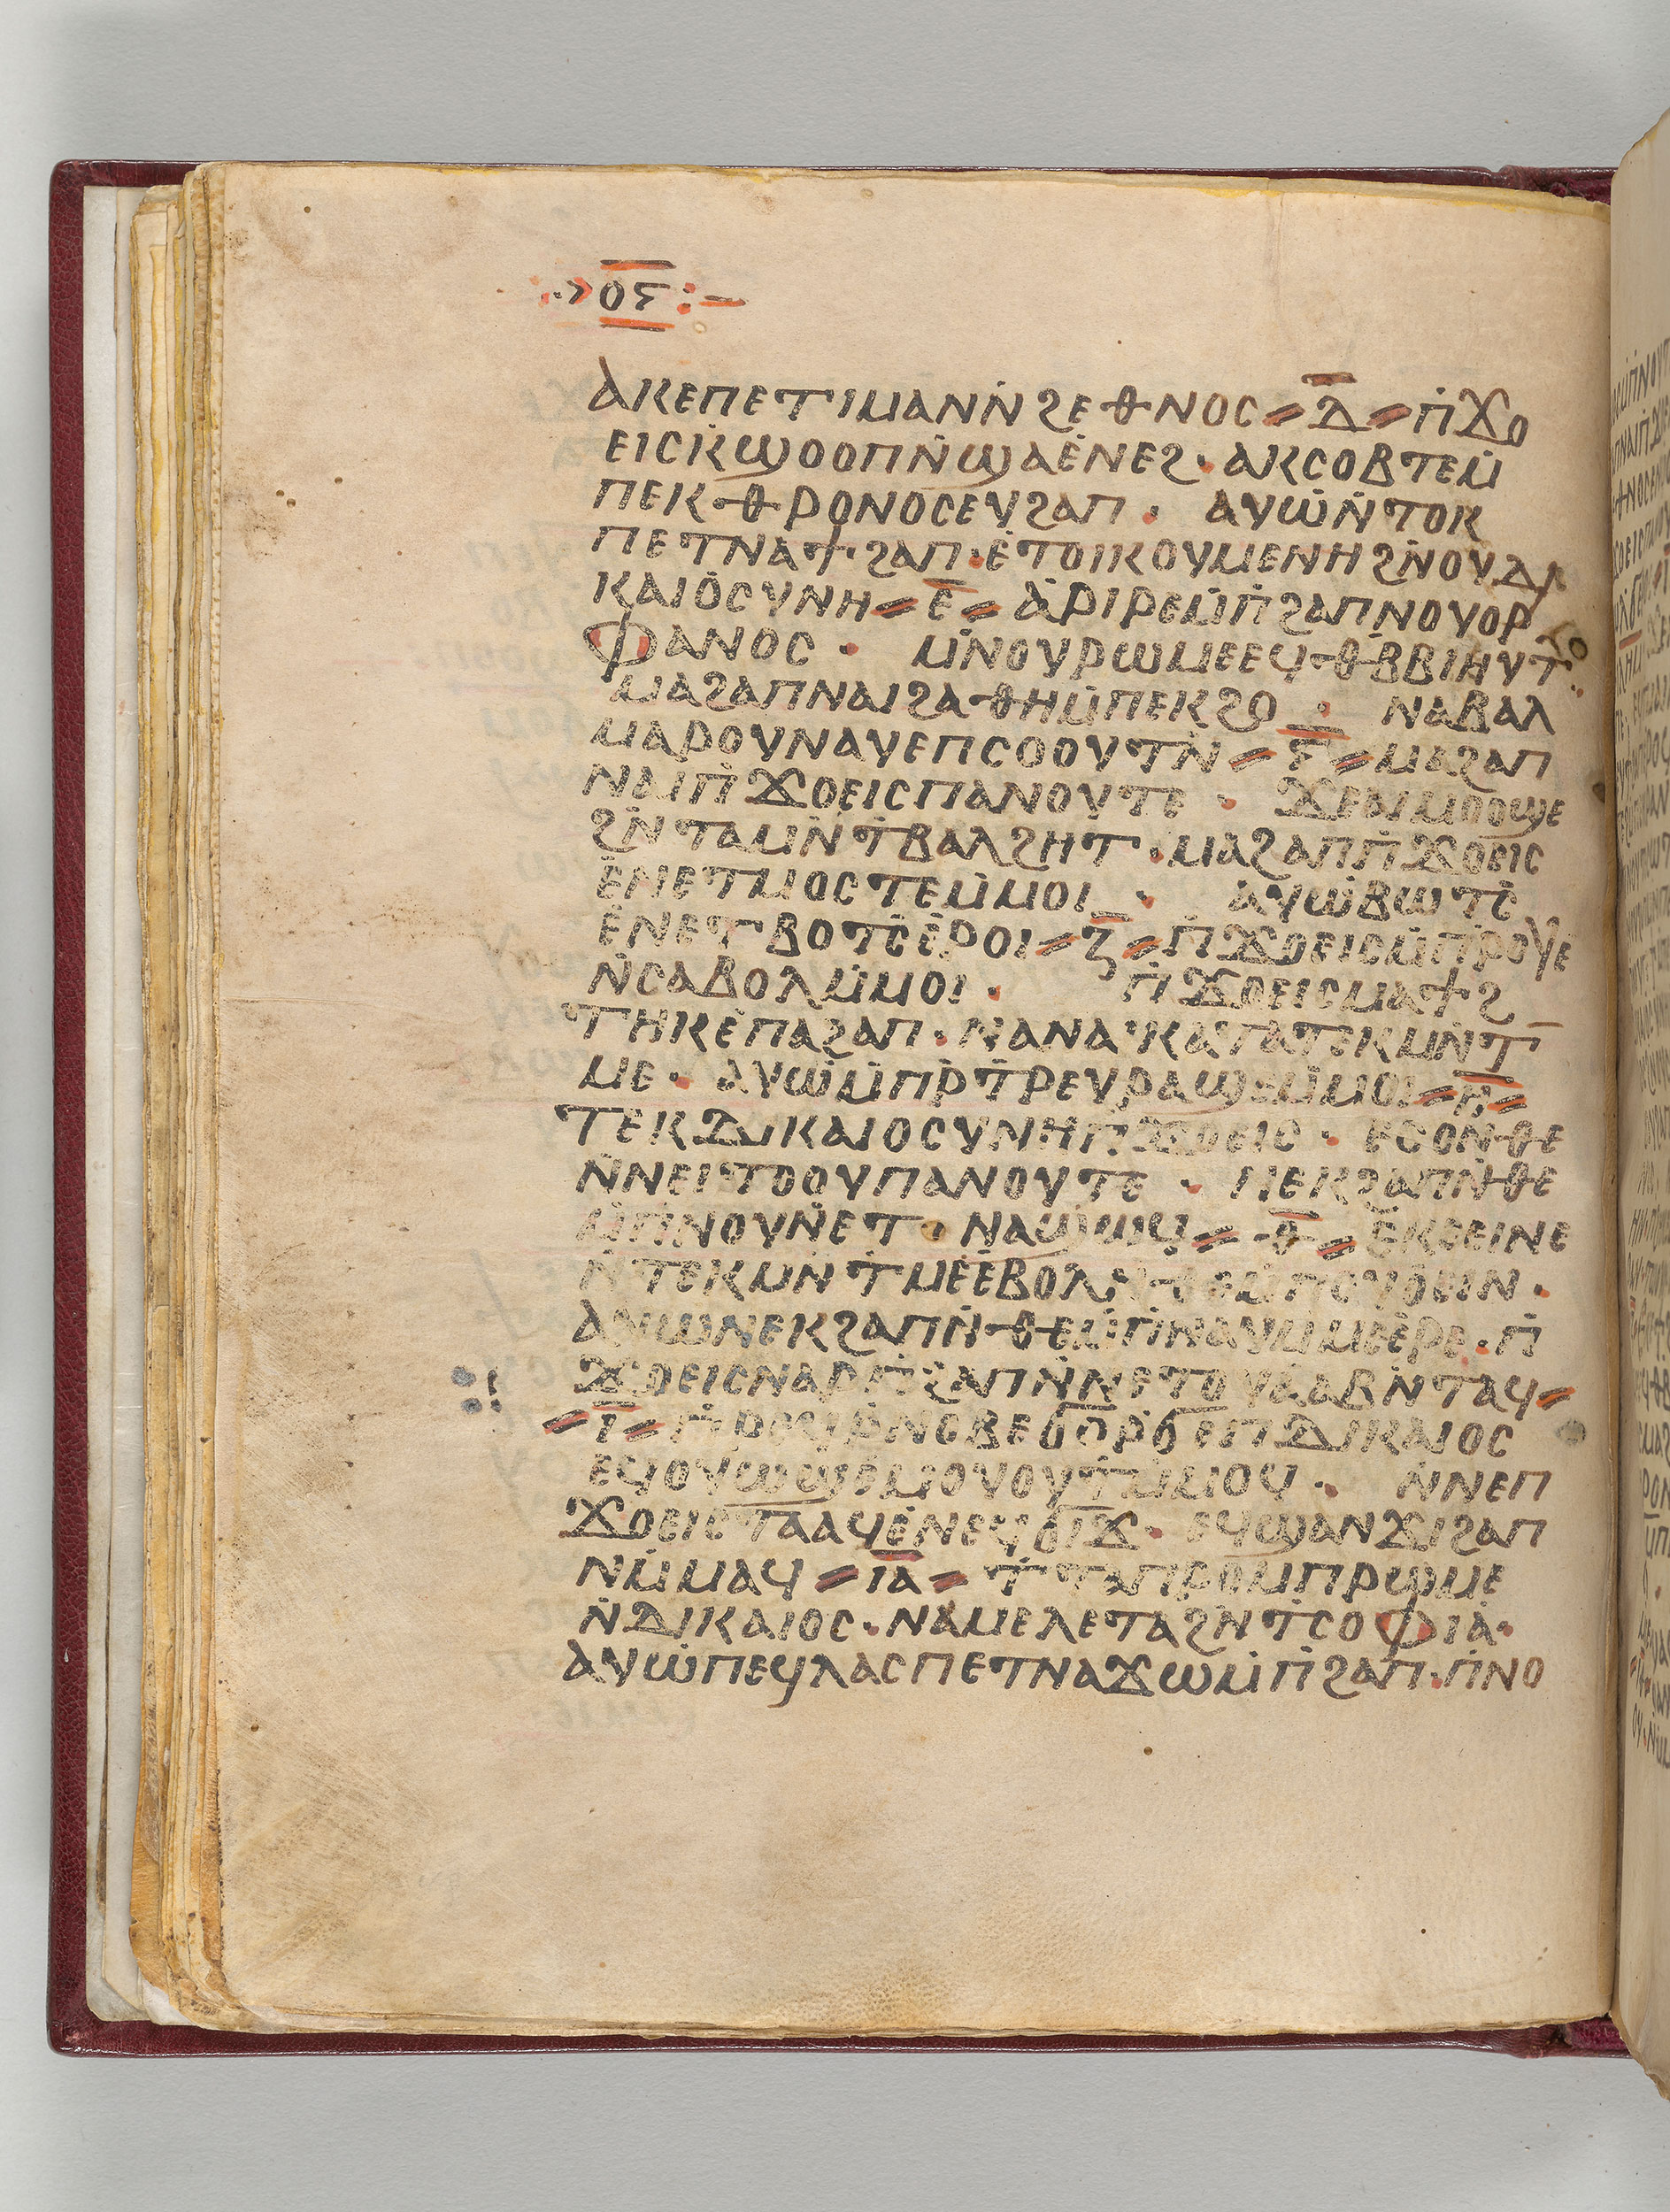 ⲟⲋ
ⲁⲕⲉⲡⲉⲧⲓⲙⲁⲛⲛ̇ϩⲉⲑⲛⲟⲥ = ⲇ̅ = ⲡ̇ϫⲟ
ⲉⲓⲥⲕ̇ϣⲟⲟⲡⲛ̇ϣⲁⲉ̇ⲛⲉϩ · ⲁⲕⲥⲟⲃⲧⲉⲙ̇
ⲡⲉⲕⲑⲣⲟⲛⲟⲥⲉⲩϩⲁⲡ · ⲁⲩⲱ̇ⲛ̇ⲧⲟⲕ
ⲡⲉⲧⲛⲁϯϩⲁⲡ · ⲉ̇ⲧⲟⲓⲕⲟⲩⲙⲉⲛⲏϩⲛ̇ⲟⲩⲇⲓ
ⲕⲁⲓⲟ̇ⲥⲩⲛⲏ = ⲉ̅ = ⲁ̇ⲣⲓⲣⲉⲙ̇ⲡ̇ϩⲁⲡⲛⲟⲩⲟⲣ
ⲫⲁⲛⲟⲥ · ⲙ̇ⲛⲟⲩⲣⲱⲙⲉⲉϥⲑⲃ̇ⲃⲓⲏⲩⲧ ·
ⲙⲁϩⲁⲡⲛⲁⲓϩⲁⲑⲏⲙ̇ⲡⲉⲕϩⲟ · ⲛⲁⲃⲁⲗ
ⲙⲁⲣⲟⲩⲛⲁⲩⲉⲡⲥⲟⲟⲩⲧⲛ̇ = ⲋ̅ = ⲙⲁϩⲁⲡ
ⲛⲁⲓⲡ̇ϫⲟⲉⲓⲥⲡⲁⲛⲟⲩⲧⲉ · ϫⲉⲁⲓⲙⲟⲟϣⲉ
ϩⲛ̇ⲧⲁⲙⲛ̇ⲧ̇ⲃⲁⲗϩⲏⲧ · ⲙⲁϩⲁⲡⲡ̇ϫⲟⲉⲓⲥ
ⲉ̇ⲛⲉⲧⲙⲟⲥⲧⲉⲙ̇ⲙⲟⲓ · ⲁⲩⲱ̇ⲃⲱⲧⲥ̇
ⲉ̇ⲛⲉⲧⲃⲟⲧⲥ̇ⲉ̇ⲣⲟⲓ = ⲍ̅ = ⲡ̇ϫⲟⲉⲓⲥⲙ̇ⲡⲣ̇ⲟⲩⲉ
ⲛ̇ⲥⲁⲃⲟⲗⲙ̇ⲙⲟⲓ · ⲡ̇ϫⲟⲉⲓⲥⲙⲁϯϩ
ⲧⲏⲕⲉ̇ⲡⲁϩⲁⲡ · ⲕⲁⲧⲁⲧⲉⲕⲙⲛ̇ⲧ
ⲙⲉ · ⲁⲩⲱ̇ⲙ̇ⲡⲣ̇ⲧⲣⲉⲩⲣⲁϣⲉⲙ̇ⲙⲟⲓ = ⲏ̅ =
ⲧⲉⲕⲇⲓⲕⲁⲓⲟⲥⲩⲛⲏⲡ̇ϫⲟⲉⲓⲥ · ⲉⲥⲟⲛ̇ⲑⲉ
ⲛ̇ⲛⲉⲓⲧⲟⲟⲩⲡⲁⲛⲟⲩⲧⲉ · ⲡⲉⲕϩⲁⲡⲛ̇ⲑⲉ
ⲙ̇ⲡ̇ⲛⲟⲩⲛ̇ⲉⲧⲛⲁϣⲱϥ = ⲑ̅ = ⲉⲕⲉⲉⲓⲛⲉ
ⲛ̇ⲧⲉⲕⲙⲛ̇ⲧⲙⲉⲉ̇ⲃⲟⲗⲛ̇ⲑⲉⲙ̇ⲡⲟⲩⲟ̇ⲉⲓⲛ ·
ⲁⲩⲱⲛⲉⲕϩⲁⲡⲛ̇ⲑⲉⲙ̇ⲡ̇ⲛⲁⲩⲙ̇ⲙⲉⲉ̇ⲣⲉ · ⲡ̇
ϫⲟⲉⲓⲥⲛⲁⲣⲡ̇ϩⲁⲡⲛ̇ⲛⲉⲧⲟⲩⲁ̇ⲁⲃⲛ̇ⲧⲁϥ =
= ⲓ̅ = ⲡ̇ⲣⲉϥⲣ̇ⲛⲟⲃⲉϭⲟⲣϭⲉⲡⲇⲓⲕⲁⲓⲟⲥ
ⲉϥⲟⲩⲱϣⲉ̇ⲙⲟⲩⲟⲩⲧⲙ̇ⲙⲟϥ · ⲛ̇ⲛⲉⲡ
ϫⲟⲉⲓⲥⲧⲁⲁϥⲉ̇ⲛⲉϥϭⲓϫ · ⲉϥϣⲁⲛϫⲓϩⲁⲡ
ⲛⲙ̇ⲙⲁϥ = ⲓ̅ⲁ̅ = ⲧ̇ⲧⲁⲡⲣⲟⲙⲡⲣⲱⲙⲉ
ⲛ̇ⲇⲓⲕⲁⲓⲟⲥ · ⲛⲁⲙⲉⲗⲉⲧⲁϩⲛ̇ⲧⲥⲟⲫⲓⲁ̇ ·
ⲁⲩⲱ̇ⲡⲉϥⲗⲁⲥⲡⲉⲧⲛⲁϫⲱⲙ̇ⲡ̇ϩⲁⲡ · ⲡ̇ⲛⲟ